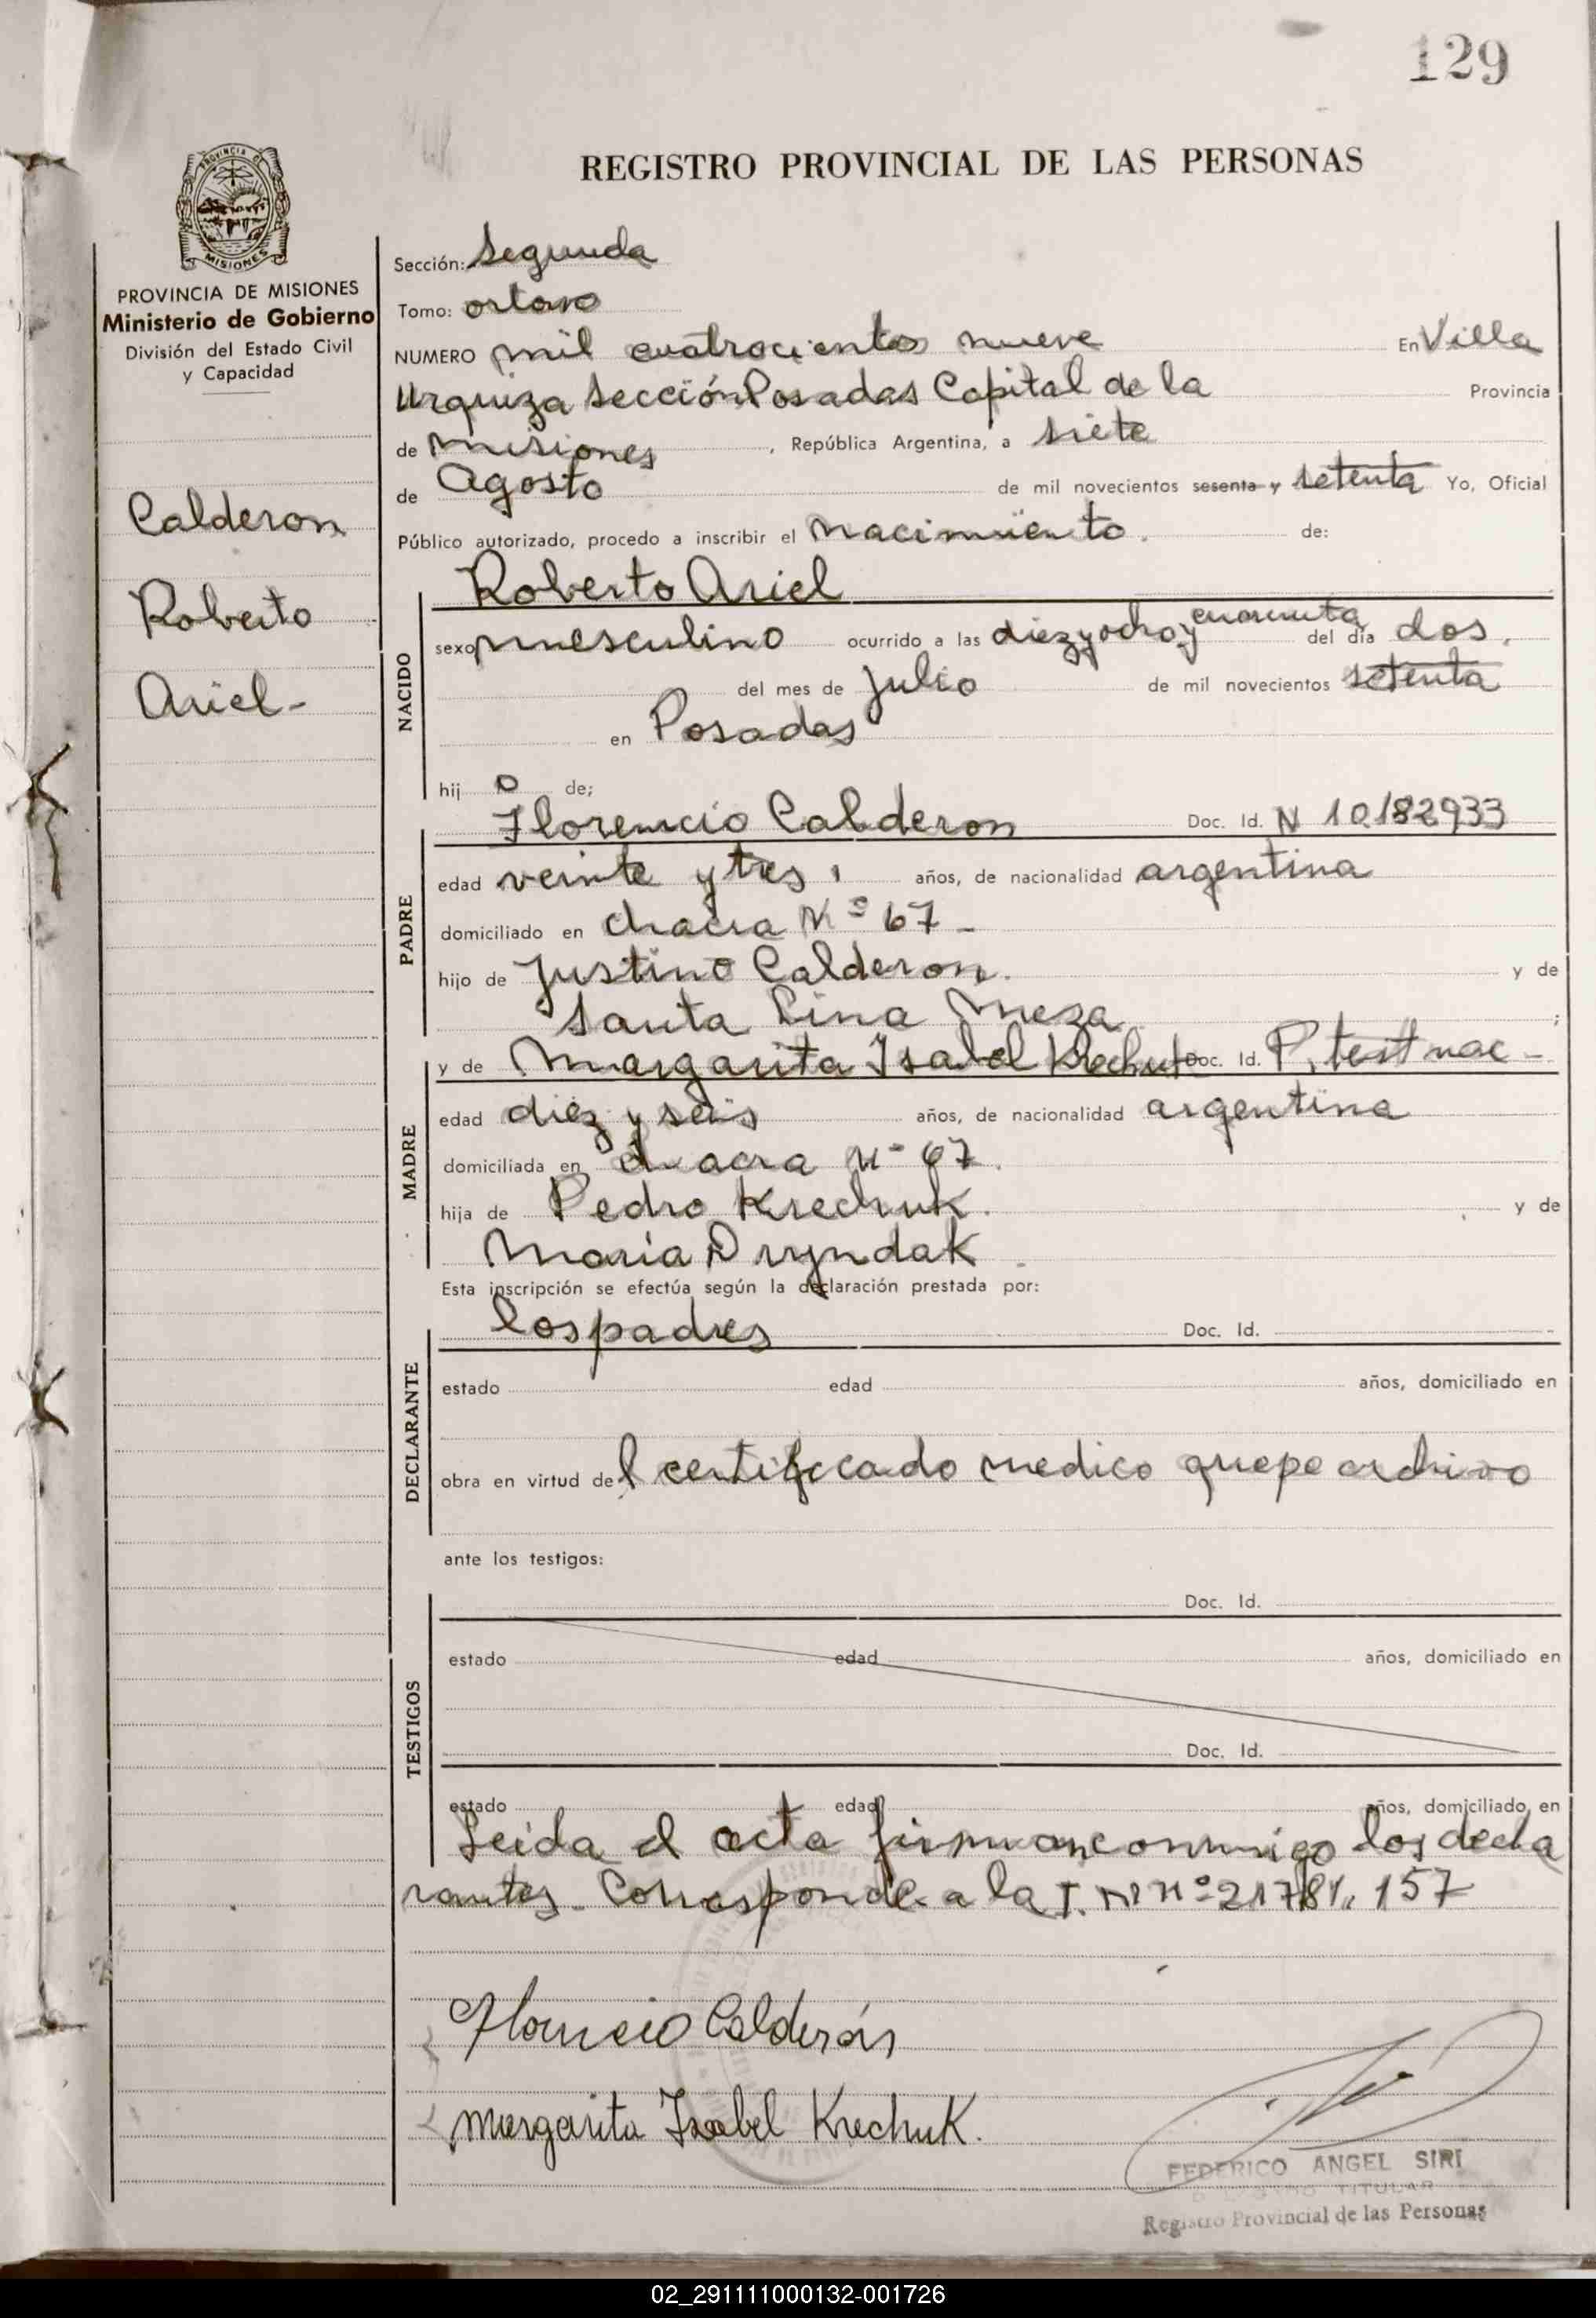 129
REGISTRO PROVINCIAL DE LAS PERSONAS
PROVINCIA DE MISIONES
PROVINCIA DE MISIONES
Ministerio de Gobierno
División del Estado Civil
y Capacidad
Calderon
Roberto
Ariel-
Sección: Segunda
Tomo: octavo
NUMERO mil cuatrocientos nueve En Villa
Urquiza Sección Posadas Capital de la Provincia
de Misiones, República Argentina, a siete
de Agosto de mil novecientos sesenta y setenta Yo, Oficial
Público autorizado, procedo a inscribir el nacimiento. de:
NACIDO
Roberto Ariel
sexo masculino ocurrido a las diez y ocho y cuarenta del día dos,
del mes de Julio de mil novecientos setenta
en Posadas
hij o de;
PADRE
Florencio Calderon Doc. Id. N 10.182933
edad veinte y tres, años, de nacionalidad argentina
domiciliado en chacra Nº 67-
hijo de Justino Calderon. y de
Santa Lina Meza ;
MADRE
y de Margarita Isabel Krechuk Doc. Id. P, test nac-
edad diez y seis años, de nacionalidad argentina
domiciliada en chacra Nº 67.
hija de Pedro Krechuk. y de
Maria Dryndak
Esta inscripción se efectúa según la declaración prestada por:
DECLARANTE
los padres Doc. Id.
estado edad años, domiciliado en
obra en virtud del certificado medico que archivo
ante los testigos:
TESTIGOS
Doc. Id.
estado edad años, domiciliado en
Doc. Id.
estado edad años, domiciliado en
Leida el acta firman conmigo los decla
rantes. Corresponde a la
157
Florencio Calderón
Margarita Isabel Krechuk.
FEDERICO ANGEL SIRI
TITULAR
Registro Provincial de las Personas
02_291111000132-001726